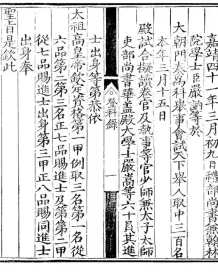 嘉靖四十一年三月初九日禮部尚書兼
院學士臣嚴訥等於
大朝門奏為科舉事會試天下舉人取中三百名
本年三月十五日
殿試合擬讀卷官及執事等官少師兼太子太師
吏部尚書華蓋殿大學士嚴嵩等六十員其進
士出身等第恭依
太祖高皇帝欽定資格第一甲例取三名第一名從
六品第二第三名正七品賜進士及第第二甲
從七品賜進士出身第三甲正八品賜同進士
出身奉
聖旨是欽此
登科錄
一